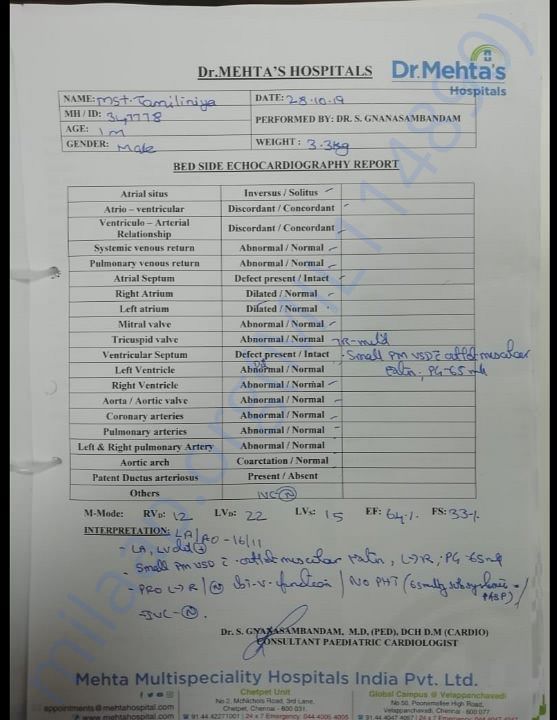 Dr.MEHTA'S HOSPITALS
Dr.Mehta's
Hospitals
NAME: Mst. Tamiliniya
DATE: 28.10.19
MH / ID: 347778
PERFORMED BY: DR. S. GNANASAMBANDAM
AGE: 1 m
GENDER: Male
WEIGHT : 3.3kg
BED SIDE ECHOCARDIOGRAPHY REPORT
Atrial situs Inversus / Solitus
Atrio – ventricular Discordant / Concordant
Ventriculo – Arterial Relationship Discordant / Concordant
Systemic venous return Abnormal / Normal
Pulmonary venous return Abnormal / Normal
Atrial Septum Defect present / Intact
Right Atrium Dilated / Normal
Left atrium Dilated / Normal
Mitral valve Abnormal / Normal
Tricuspid valve Abnormal / Normal TR-mild
Ventricular Septum Defect present / Intact - Small PM VSD c outlet muscular
Left Ventricle Abnormal / Normal PG-65
Right Ventricle Abnormal / Normal
Aorta / Aortic valve Abnormal / Normal
Coronary arteries Abnormal / Normal
Pulmonary arteries Abnormal / Normal
Left & Right pulmonary Artery Abnormal / Normal
Aortic arch Coarctation / Normal
Patent Ductus arteriosus Present / Absent
Others IVC-N
M-Mode: RVD: 12 LVD: 22 LVS: 15 EF: 64% FS: 33%
INTERPRETATION: LA/AO - 16/11
- LA, LV dil
- Small PM VSD c outlet muscular L→R, PG-65
- L→R / N bi-v-function / NO PHT
IVC-N.
Dr. S. GNANASAMBANDAM, M.D, (PED), DCH D.M (CARDIO)
CONSULTANT PAEDIATRIC CARDIOLOGIST
Mehta Multispeciality Hospitals India Pvt. Ltd.
appointments@mehtahospital.com
www.mehtahospital.com
Chetpet Unit
No.2, McNichols Road, 3rd Lane,
Chetpet, Chennai - 600 031.
Global Campus @ Velappanchavadi
No.50, Poonamallee High Road,
Velappanchavadi, Chennai - 600 077